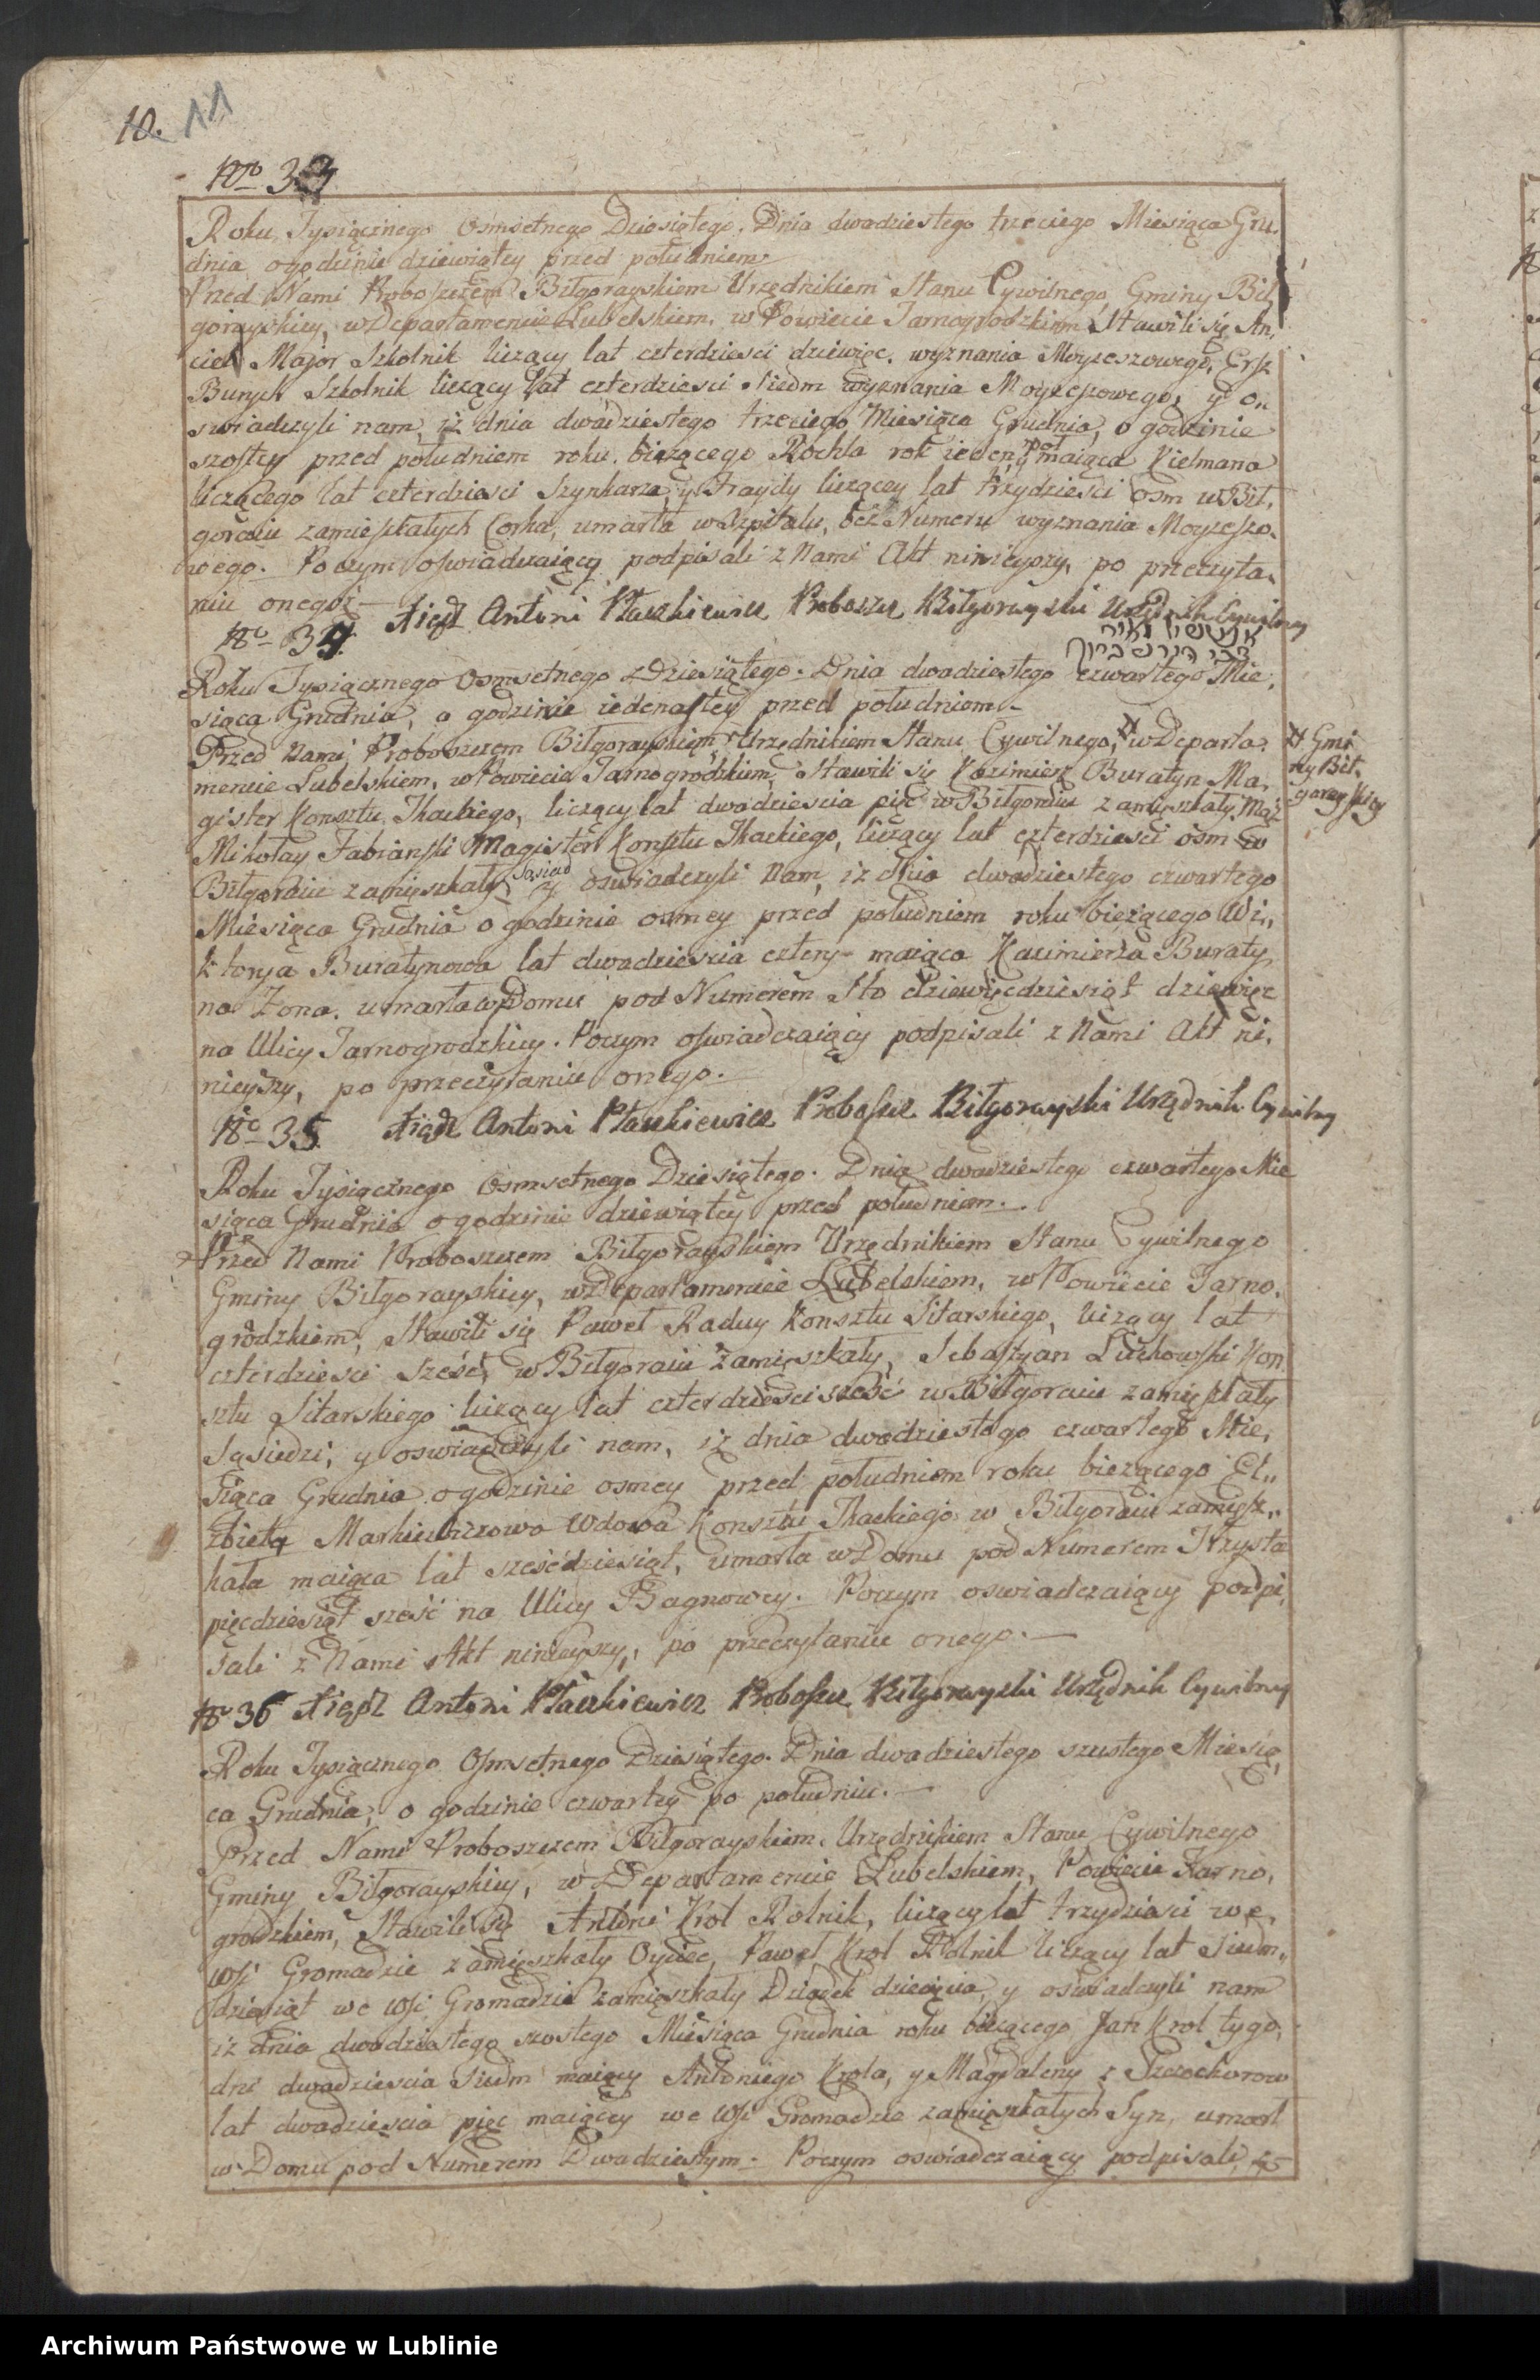 10. 11
No 33
Roku Tysiącznego Osmsetnego Dziesiątego. Dnia dwadziestego trzeciego Miesiąca Gru,
dnia ogodzinie dziewiątey przed południem
Przed Nami Proboszczem Biłgorayskiem Urzędnikiem Stanu Cywilnego Gminy Bił
gorayskiey, w Departamencie Lubelskiem, w Powiecie Tarnogrodzkiem Stawili się An,
ciel Major Szkolnik liczący lat czterdziesci dziewięc, wyznania Moyzeszowego,
Szkolnik liczący lat czterdziesci siedm wyznania Moyzeszowego, y o,
swiadczyli nam, iż dnia dwadziestego trzeciego Miesiąca Grudnia, o godzinie
szostey przed południem roku bieżącego Rochla rok ieden y poł maiąca Kielmana
liczącego lat czterdziesci Szynkarza, y Fraydy liczącey lat trzydziesci osm w Bił,
goraiu zamieszkałych Corka, umarła w Szpitalu, bez Numeru wyznania Moyzeszo,
wego. Poczym oswiadczaiący podpisali z Nami Akt ninieyszy, po przeczyta,
niu onegoż —
Xiądz Antoni Ptaszkiewicz Proboszcz Biłgorayski Urzędnik Cywilny
No 34.
Roku Tysiącznego Osmsetnego Dziesiątego. Dnia dwadziestego czwartego Mie,
siąca Grudnia, o godzinie iedenastey przed południem —
Przed Nami Proboszczem Biłgorayskiem Urzędnikiem Stanu Cywilnego, # w Departa,
# Gmi
ny Bił,
gorayskiey
mencie Lubelskiem, w Powiecie Tarnogrodzkiem, Stawili się Kazimierz Buratyn Ma,
gister Konsztu Tkackiego, liczący lat dwadziescia pięc w Biłgoraiu zamieszkały Mąż
Mikołay Fabianski Magister Konsztu Tkackiego, liczący lat czterdziesci osm w
Biłgoraiu zamięszkały Sąsiad y oswiadczyli Nam, iż dnia dwadziestego czwartego
Miesiąca Grudnia o godzinie osmey przed południem roku bieżącego Wi,,
ktorya Buratynowa lat dwadziescia cztery maiąca Kazimierza Buraty,
na Zona, umarła w Domu pod Numerem Sto dziewięcdziesiąt dziewięc
na Ulicy Tarnogrodzkiey. Poczym oswiadczaiący podpisali z Nami Akt ni,
nieyszy, po przeczytaniu onego. —
No 35 Xiądz Antoni Ptaszkiewicz Proboszcz Biłgorayski Urzędnik Cywilny
Roku Tysiącznego Osmsetnego Dziesiątego. Dnia dwadziestego czwartego Mie
siąca Grudnia ogodzinie dziewiątey przed południem. —
Przed Nami Proboszczem Biłgorayskiem Urzędnikiem Stanu Cywilnego
Gminy Biłgorayskiey, w Departamencie Lubelskiem, w Powiecie Tarno,
grodzkiem, Stawili się Paweł Raduy Konsztu Sitarskiego, liczący lat
czterdziesci sześć, w Biłgoraiu zamięszkały, Sebastyan Kon
sztu Sitarskiego liczący lat czterdziesci sześć w Biłgoraiu zamięszkały
Sąsiedzi, y oswiadczyli nam, iż dnia dwadziestego czwartego Mie,
siąca Grudnia ogodzinie osmey przed południem roku bieżącego El,,
zbieta Markiewiczowa Wdowa Konsztu Tkackiego w Biłgoraiu zamięsz,,
kała maiąca lat sześćdziesiąt, umarła w Domu pod Numerem Trzysta
pięcdziesiąt sześć na Ulicy Bagnowey. Poczym oswiadczaiący podpi,
sali z Nami Akt ninieyszy, po przeczytaniu onego. —
No 36 Xiądz Antoni Ptaszkiewicz Proboszcz Biłgorayski Urzędnik Cywilny
Roku Tysiącznego Osmsetnego Dziesiątego. Dnia dwadziestego szustego Miesią,
ca Grudnia, o godzinie czwartey po południu. —
Przed Nami Proboszczem Biłgorayskiem Urzędnikiem Stanu Cywilnego
Gminy Biłgorayskiey, w Departamencie Lubelskiem, Powiecie Tarno,
grodzkiem, Stawili się Antoni Krol Rolnik, liczący lat trzydziesci we,
wsi Gromadzie zamięszkały Oyciec, Paweł Krol Rolnik liczący lat siedm,,
dziesiąt we wsi Gromadzie zamięszkały Dziadek dziecięcia, y oswiadczyli nam
iż dnia dwadziestego szostego Miesiąca Grudnia roku bieżącego Jan Krol tygo,
dni dwadziescia siedm maiący Antoniego Krola, y Magdaleny z
lat dwadziescia pięc maiącey we wsi Gromadzie zamięszkałych Syn, umarł
w Domu pod Numerem Dwadziestym. Poczym oswiadczaiący podpisali,
Archiwum Państwowe w Lublinie